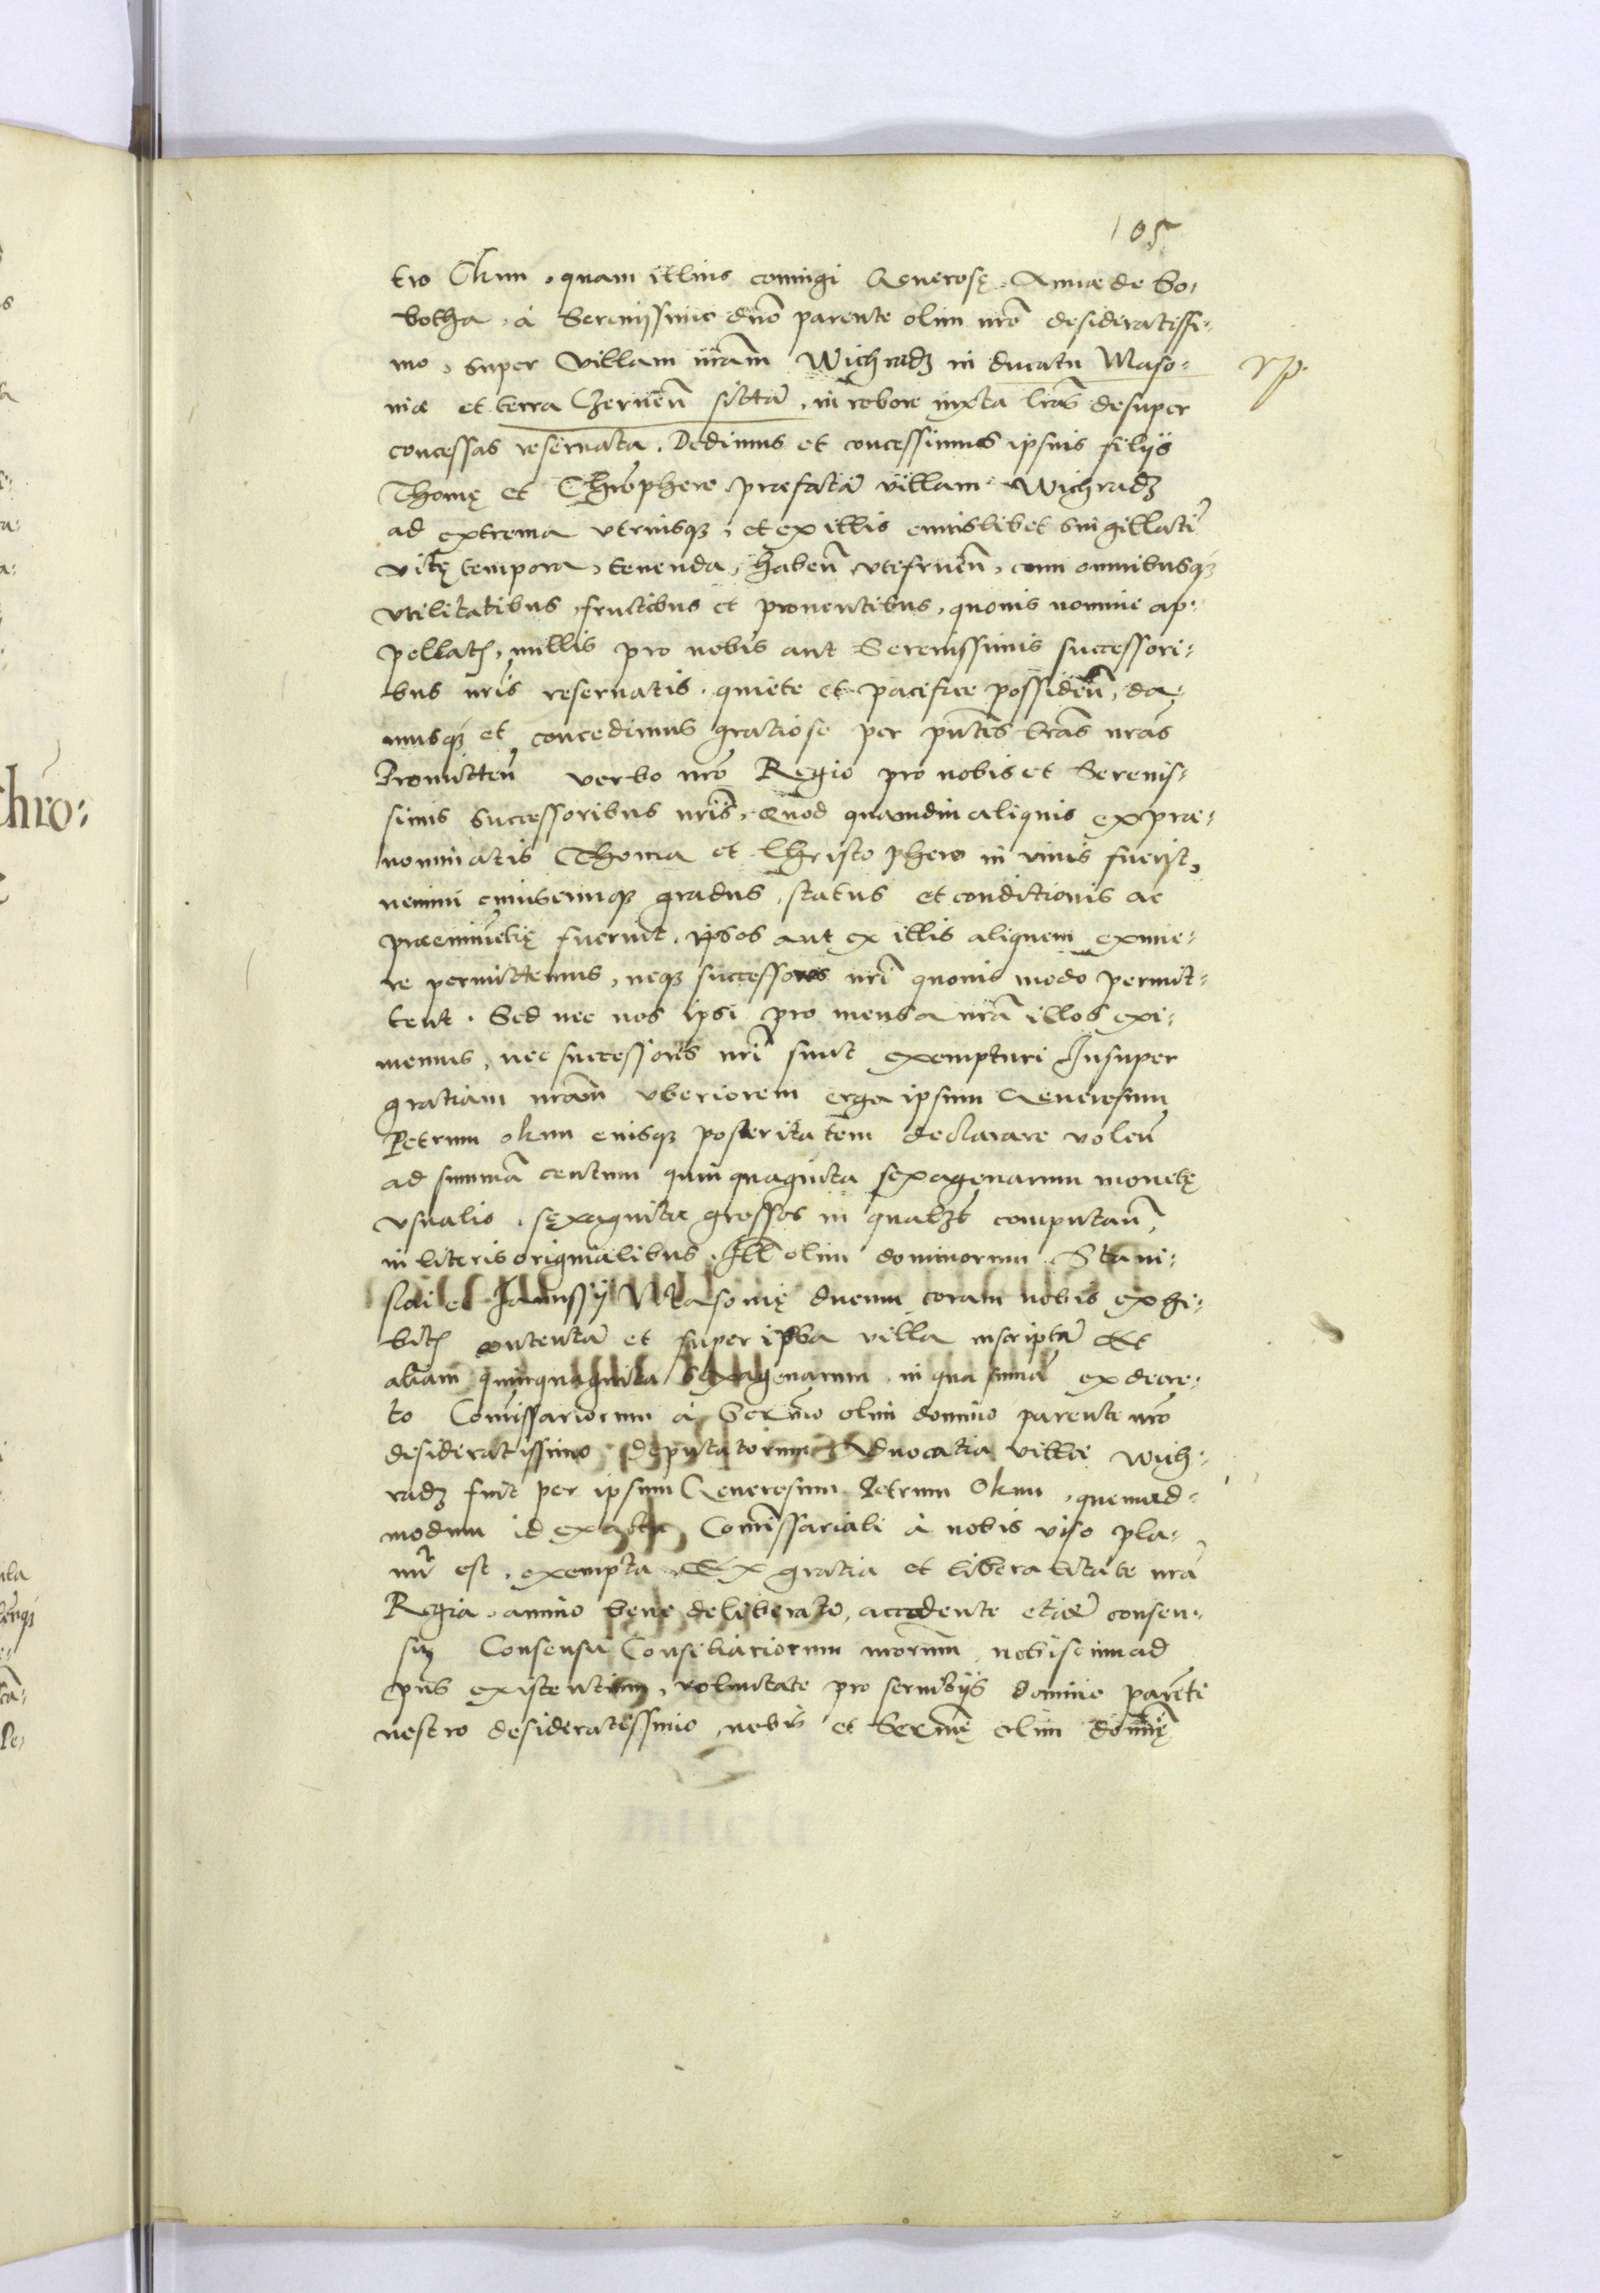 105
tro Okun, quam illius coniugi Generosę Annae de So,
botha, à Serenissimo dn̄o parente olim nr̄o desideratissi-
mo, super villam nr̄am Wichradz in ducatu Maso-
niae et terra Czernen̄ sittā, in robore iuxta lrās desuper
concessas reseruata. Dedimus et concessimus ipsius filijs
Thomę et Chrōphero praefatā villam Wichradz
ad extrema vtriusqȝ, et ex illis cuiuslibet singillatī
vitę tempora, tenenda, haben̄ vtifruen̄, cum omnibusqȝ
vtilitatibus, fructibus et prouentibus, quouis nomine ap-
pellatis, nullis pro nobis aut Serenissimis successori-
bus nr̄is reseruatis. quiete et pacifice possiden̄, da,
musqȝ et concedimus gratiose per pn̄tes lrās nrās
Promitten̄ verbo nr̄o Regio pro nobis et Serenis-
simis Successoribus nr̄is, Quod quamdiu aliquis ex prae-
nominatis Thoma et Christophero in viuis fuerit,
nemini cuiuscunqȝ gradus, status et conditionis ac
praeminen̄tię fuerint, ipsos aut ex illis aliquem exime-
re permittemus, neqȝ successores nr̄i quouis modo permit-
tent. Sed nec nos ipsi pro mensa nr̄a illos exi-
memus, nec successores nr̄i sunt exempturi Insuper
gratiam nr̄am vberiorem erga ipsum Generosum
Petrum Okun eiusqȝ posteritatem declarare volen̄
ad summā centum quinquaginta sexagenarum monetę
vsualis, sexaginta grossos in qualȝt computan̄,
in literis originalibus Ill olim dominorum Stani-
slai et Janussij Masonię ducum coram nobis exhi-
bitis contentā et super ipsa villa inscriptā Et
aliam quinquaginta sexagenarum in qua summā ex decre-
to Com̄issariorum à Serm̄o olim domino parente nr̄o
desideratissimo deputatorum Aduocatia villae Wich-
radz fuit per ipsum Generosum Petrum Okun, quemad-
modum id ex actu Com̄issariali à nobis viso pla-
nū est, exempta Ex gratia et liberalitate nr̄a
Regia, animo bene deliberato, accedente etiā consen-
su Consensu Consiliariorum nr̄orum nobiscum ad
pn̄s existentium, voluntate pro seruitijs domino parente
nostro desideratissimo nobis et Serm̄ę olim domię